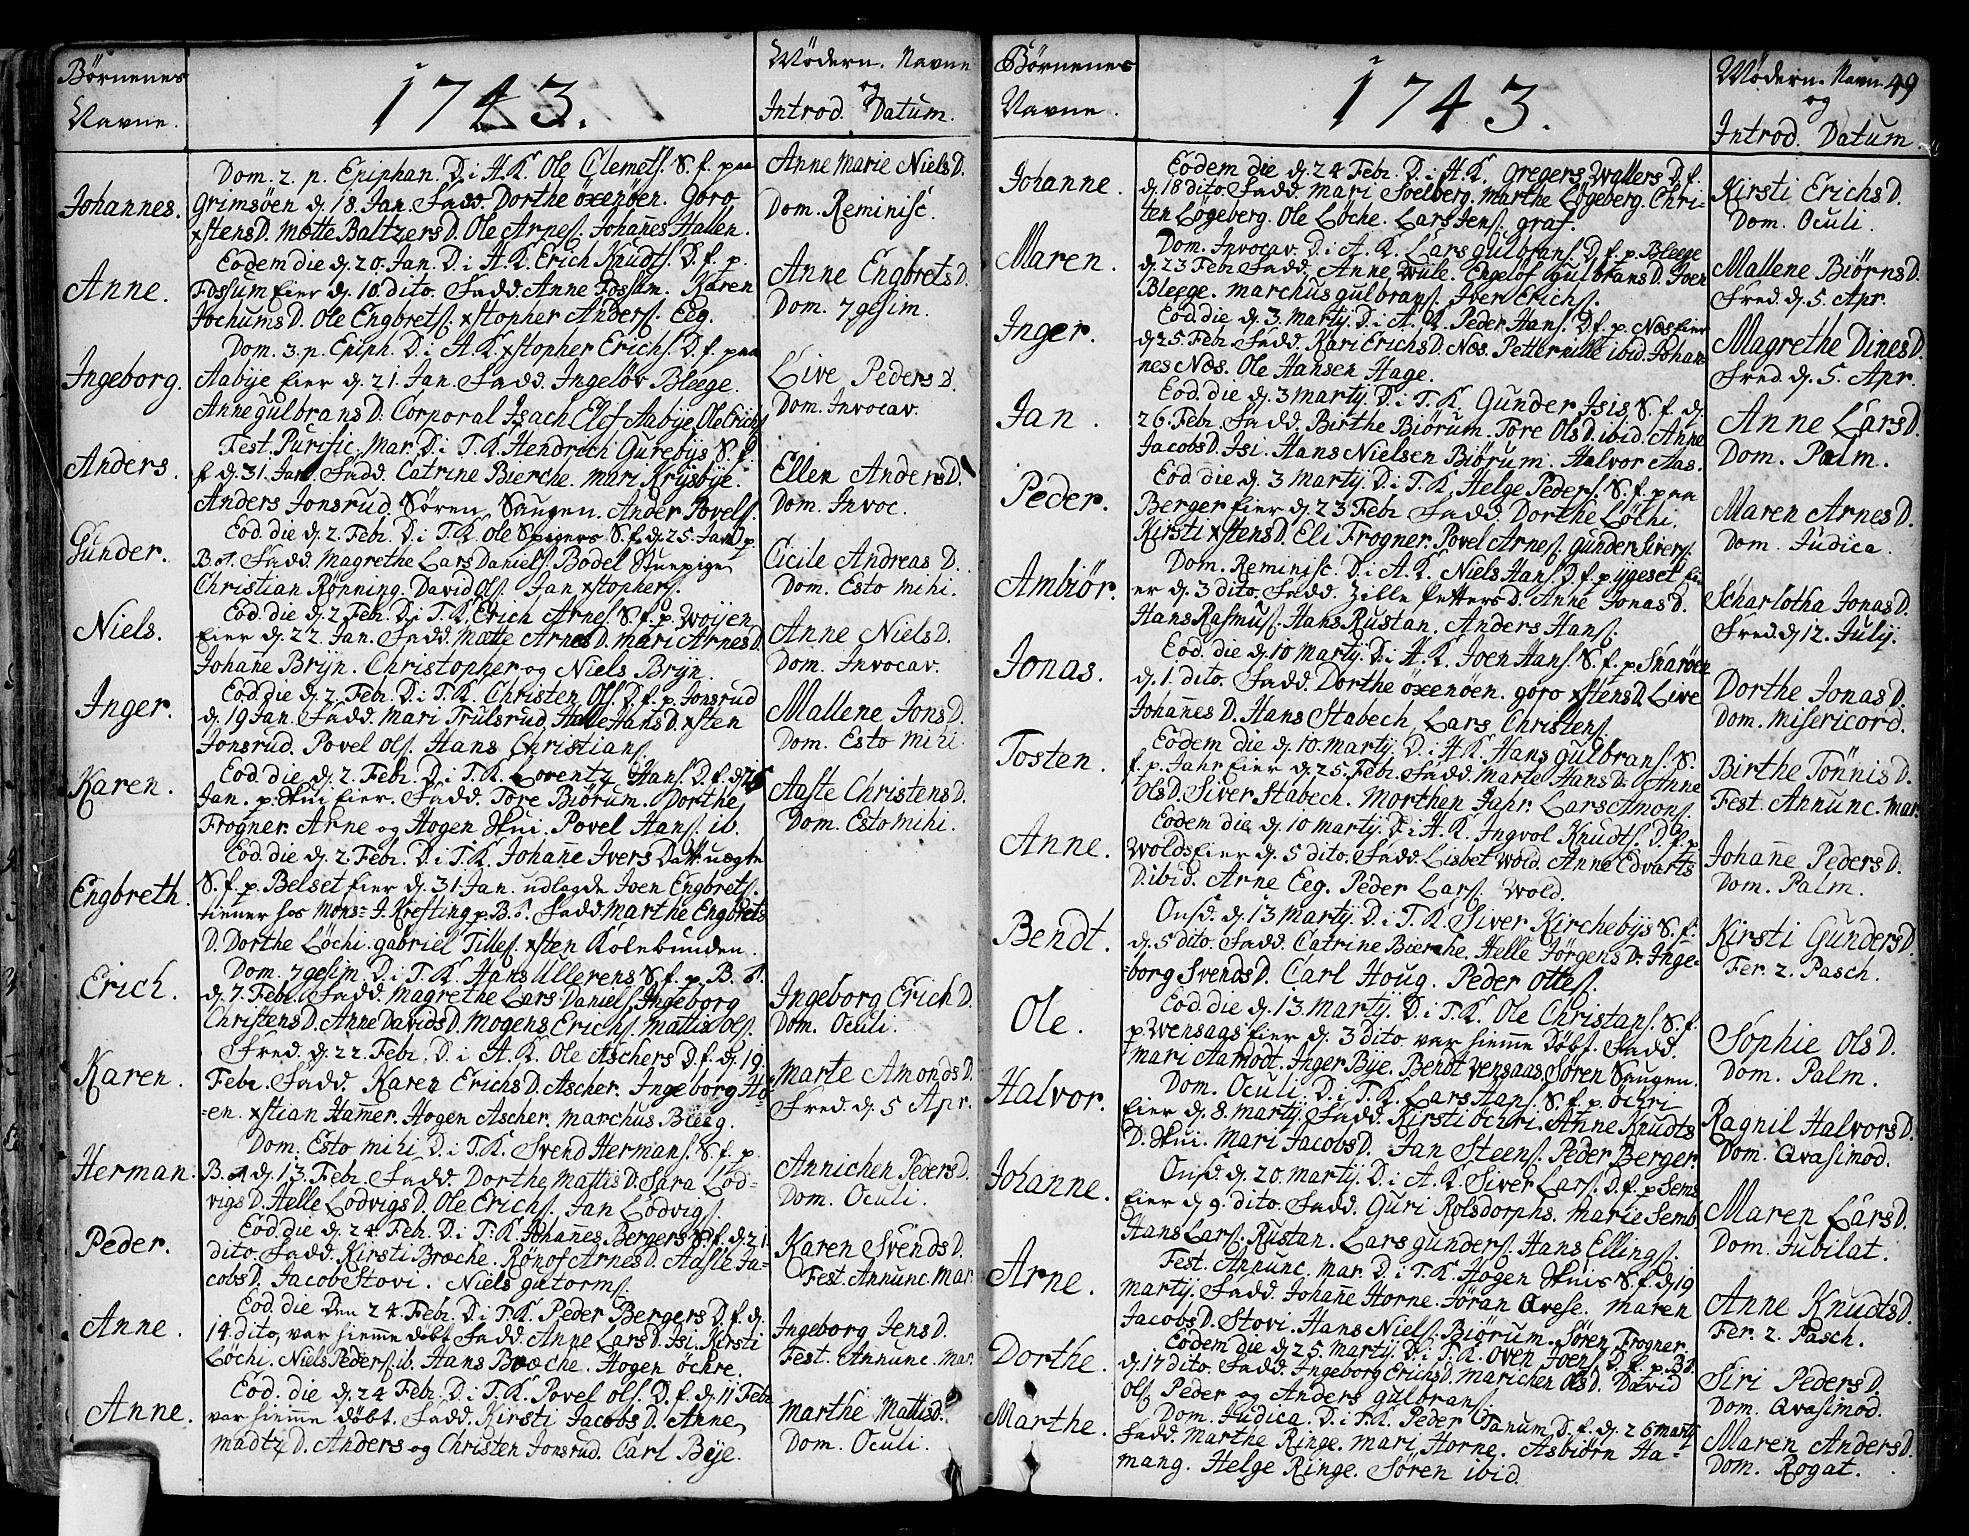 Börnenes
Navne.
1743.
Mödern. Navne
og
Introd. Datum.
Johannes.
Dom. 2. p. Epiphan. D. i A. K. Ole Clemets. S. f. paa
Grimsöen d. 18. Jan. Fadd. Dorthe öxenöen. Goro
xstensD. Mette BaltzersD. Ole Arnes. Johanes Hallen.
Anne Marie NielsD.
Dom. Reminisc.
Anne.
Eodem die d. 20. Jan. D. i A. K. Erich Knudts. D. f. p.
Fossum eier d. 10. dito. Fadd. Anne Fossum. Karen
JochumsD. Ole Engbrets. xstopher Anders. Eeg.
Anne EngbretsD.
Dom. 7gesim.
Ingeborg.
Dom. 3. p. Epiph. D. i A. K. xstopher Erichs. D. f. paa
Aabye eier d. 21. Jan. Fadd. Ingelöv Bleege.
Anne gulbransD. Corporal Isach Elef Aabye. Ole Erichs
Live PedersD.
Dom. Invocav.
Anders.
Fest. Purific. Mar. D. i T. K. Hendrich Gurebys S.
f. d. 31. Jan. Fadd. Catrine Bierche. Mari Krysbye.
Anders Jonsrud. Sören Saugen. Ander Povels.
Ellen AndersD.
Dom. Invoc.
Gunder.
Eod. die d. 2. Febr. D. i T. K. Ole Spigers S. f. d. 25. Jan. p
B. V. Fadd. Magrethe Lars Daniels. Bodel Stuepige
Christian Rönning. David Ols. Jan xstophers.
Cicile Andreas D.
Dom. Esto mihi.
Niels.
Eod. die d. 2 Febr. D. i T. K. Erich Arnes. S. f. p. Woijen
eier d. 22. Jan. Fadd. Mætte ArnesD. Mari ArnesD.
Johane Bryn. Christopher og Niels Bryn.
Anne NielsD.
Dom. Invocav.
Inger.
Eod. die d. 2. Febr. D. i T. K. Christen Ols. D. f. p. Jonsrud
d. 19 Jan. Fadd. Mari Trulsrud. Helle HansD. xsten
Jonsrud. Povel Ols. Hans Christians.
Mallene JonsD.
Dom. Esto mihi.
Karen.
Eod. die d. 2. Febr. D. i T. K. Lorentz Hans. D. f. d. 25
Jan. p. Skui eier. Fadd. Tore Biörum. Dorthe
Frogner. Arne og Hogen Skui. Povel Hans. ib.
Aaste ChristensD.
Dom. Esto mihi.
Engbreth.
Eod. die d. 2. Febr. D. i T. K. Johane Ivers Datt. uægte
S. f. p. Belset eier d. 31. Jan. udlagde Joen Engbrets.
tiener hos Mons: J. Krefting p. B. V. Fadd. Marthe Engbrets
D. Dorthe Löchi. gabriel Tilles. xsten Kolebunden.
Erich.
Dom. 7gesim. D. i T. K. Hans Ullerens S. f. p. B. V.
d. 7. Febr. Fadd. Magrethe Lars Daniels. Ingeborg
ChristensD. Anne DavidsD. Mogens Erichs. Mattis Ols.
Ingeborg ErichD.
Dom. Oculi.
Karen.
Fred. d. 22. Febr. D. i A. K. Ole Aschers D. f. d. 19
Febr. Fadd. Karen ErichsD. Ascher. Ingeborg Ho-
-en. xstian Hamer. Hogen Ascher. Marchus Bleeg.
Marte AmondsD.
Fred. d. 5 Apr.
Herman.
Dom. Esto mihi D. i T. K. Svend Hermans. S. f. p.
B. V. d. 13. Febr. Fadd. Dorthe MattisD. Sara Lod-
vigsD. Helle LodvigsD. Ole Erichs. Jan Lodvigs.
Annichen PedersD.
Dom. Oculi.
Peder.
Eod. die d. 24. Feb. D. i T. K. Johanes Bergers S. f. d. 21.
dito. Fadd. Kirsti Broche. Rönof ArnesD. Aaste Ja-
cobsD. Jacob Stovi. Niels gutorms.
Karen SvendsD.
Fest. Annunc. Mar
Anne.
Eod. die den 24. Febr. D. i T. K. Peder Bergers D. f. d.
14. dito, var hieme döbt. Fadd. Anne LarsD. Isi. Kirsti
Löchi. Niels Peders. ib. Hans Bræche. Hogen öchre.
Ingeborg JensD.
Fest. Annunc. Mar.
Anne.
Eod. die d. 24 Febr. D. i T. K. Povel Ols. D. f. d. 11 Febr.
var hieme döbt. Fadd. Kirsti JacobsD. Anne
MadtzD. Anders og Christen Jonsrud. Carl Bye.
Marthe MattisD.
Dom. Oculi.
Börnenes
Navne.
1743.
Mödern. Navn. 49
og
Introd. Datum.
Johanne.
Eodem die d. 24 Febr. D. i A. K. Gregers Wallers D. f.
d. 18 dito. Fadd. Mari Soelberg. Marthe Lögeberg. Chri-
ten Lögeberg. Ole Löche. Lars Jens. graf.
Kirsti ErichsD.
Dom. Oculi.
Maren.
Dom. Invocav. D. i A. K. Lars gulbrans. D. f. p. Bleege
d. 23 Febr. Fadd. Anne Wüle. Engelof GulbransD. Iven
Bleege. Marchus gulbrans. Iver Erichs.
Mallene BiörnsD.
Fred. d. 5. Apr.
Inger.
Eod. die d. 3. Martij. D. i A. K. Peder Hans. D. f. p. Næs eier
d. 25. Febr. Fadd. Kari ErichsD. Næs. Petternille ibid. Johan-
nes Næs. Ole Hansen Hage.
Magrethe DinesD.
Fred. d. 5. Apr.
Jan.
Eod. die d. 3 Martij. D. i T. K. Gunder Isis. S. f. d.
26. Febr. Fadd. Birthe Biörum. Tore OlsD. ibid. Anne
JacobsD. Isi. Hans Nielsen Biörum. Halvor Aas.
Anne LarsD.
Dom. Palm.
Peder.
Eod. die d. 3 Martij. D. i T. K. Helge Peders. S. f. paa
Berger eier d. 23 Febr. Fadd. Dorthe Löchi.
Kirsti xstensD. Eli Frogner. Povel Arnes. gunder Sivers.
Maren ArnesD.
Dom. Judica.
Ambiör.
Dom. Reminisc. D. i A. K. Niels Hans. D. f. p. ygeset ei-
er d. 3 dito. Fadd. Zille PettersD. Anne JonasD.
Hans Rasmus. Hans Rustan. Anders Hans.
Scharlotha JonasD.
Fred. d. 12. Julij.
Jonas.
Eod. die d. 10 Martij. D. i A. K. Joen Hans. S. f. p. Snaröen
d. 1. dito. Fadd. Dorthe öxenöen. goro xstensD. Live
Johanes D. Hans Stabech. Lars Christens.
Dorthe JonasD.
Dom. Misericord.
Tosten.
Eodem die d. 10. Martij. D. i A. K. Hans gulbrans. S.
f. p. Jahr eier d. 25. Febr. Fadd. Marte HansD. Anne
OlsD. Siver Stabech. Morthen Jahr. Lars Amons.
Birthe TönnisD.
Fest. Annunc. Mar.
Anne.
Eodem die d. 10 Martij. D. i A. K. Ingvol Knudts. D. f. p.
Wolds eier d. 5 dito. Fadd. Lisbet Wold. Anne Edvarts
D. ibid. Arne Eeg. Peder Lars. Wold.
Johane PedersD.
Dom. Palm.
Bendt.
Onsd. d. 13 Martij. D. i T. K. Siver Kirchebys S. f.
d. 5 dito. Fadd. Catrine Bierche. Helle JörgensD. Inge-
-borg SvendsD. Carl Houg. Peder Olles.
Kirsti GundersD.
Fer. 2. Pasch.
Ole.
Eod. die d. 13. Martij. D. i T. K. Ole Christans. S. f.
p. Wensaas eier d. 3 dito var hieme döbt. Fadd.
Mari Aamodt. Inger Bye. Bendt Vensaas. Sören Saugen.
Sophie OlsD.
Dom. Palm.
Halvor.
Dom. Oculi. D. i T. K. Lars Hans. S. f. p. öchri
eier d. 8. Martij. Fadd. Kirsti öchri. Anne Knudts
D. Skui. Mari JacobsD. Jan Steens. Peder Berger.
Ragnil HalvorsD.
Dom. Qvasimod.
Johanne.
Onsd. d. 20. Martij. D. i A. K. Siver Lars. D. f. p. Sems
eier d. 9. dito. Fadd. Guri Rolsdorphs. Marie Semb
Hans Lars. Rustan. Lars gunders. Hans Ellings.
Maren LarsD.
Dom. Jubilat.
Arne.
Fest. Annunc. Mar. D. i T. K. Hogen Skuis S. f. d. 19
Martij. Fadd. Johane Horne. Jöran Qvese. Maren
JacobsD. Stovi. Hans Niels. Biörum. Sören Frogner.
Anne KnudtsD.
Fer. 2. Pasch.
Dorthe.
Eodem die d. 25. Martij. D. i T. K. Oven Joens. D. f. p. B. V.
d. 17 dito. Fadd. Ingeborg ErichsD. Marichen OlsD. David
Ols. Peder og Anders gulbrans.
Siri PedersD.
Dom. Qvasimod.
Marthe.
Dom. Judica. D. i T. K. Peder Tanum D. f. d. 26 Martij
Fadd. Marthe Ringe. Mari Horne. Asbiörn Ha-
mang. Helge Ringe. Sören ibid.
Maren AndersD.
Dom. Rogat.